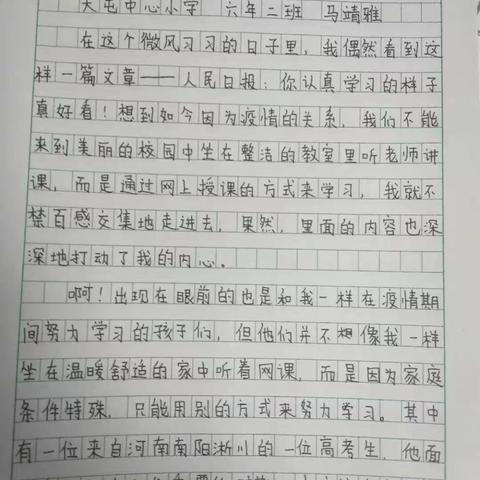 大屯中心小学 六年二班 马靖雅
在这个微风习习的日子里，我偶然看到这
样一篇文章——人民日报：你认真学习的样子
真好看！想到如今因为疫情的关系，我们不能
来到美丽的校园中坐在整洁的教室里听老师讲
课，而是通过网上授课的方式来学习，我就不
禁百感交集地走进去，果然，里面的内容也深
深地打动了我的内心。
啊！出现在眼前的也是和我一样在疫情期
间努力学习的孩子们，但他们并不想像我一样
坐在温暖舒适的家中听着网课，而是因为家庭
条件特殊，只能用别的方式来努力学习。其中
有一位来自河南南阳淅川的一位高考生，他面